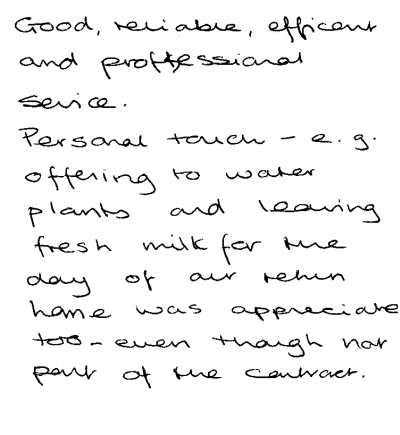 Good, reliable, efficent
and proffessional
service.
Personal touch - e.g.
offering to water
plants and leaving
fresh milk for the
day of our return
home was appreciate
too - even though not
part of the contract.